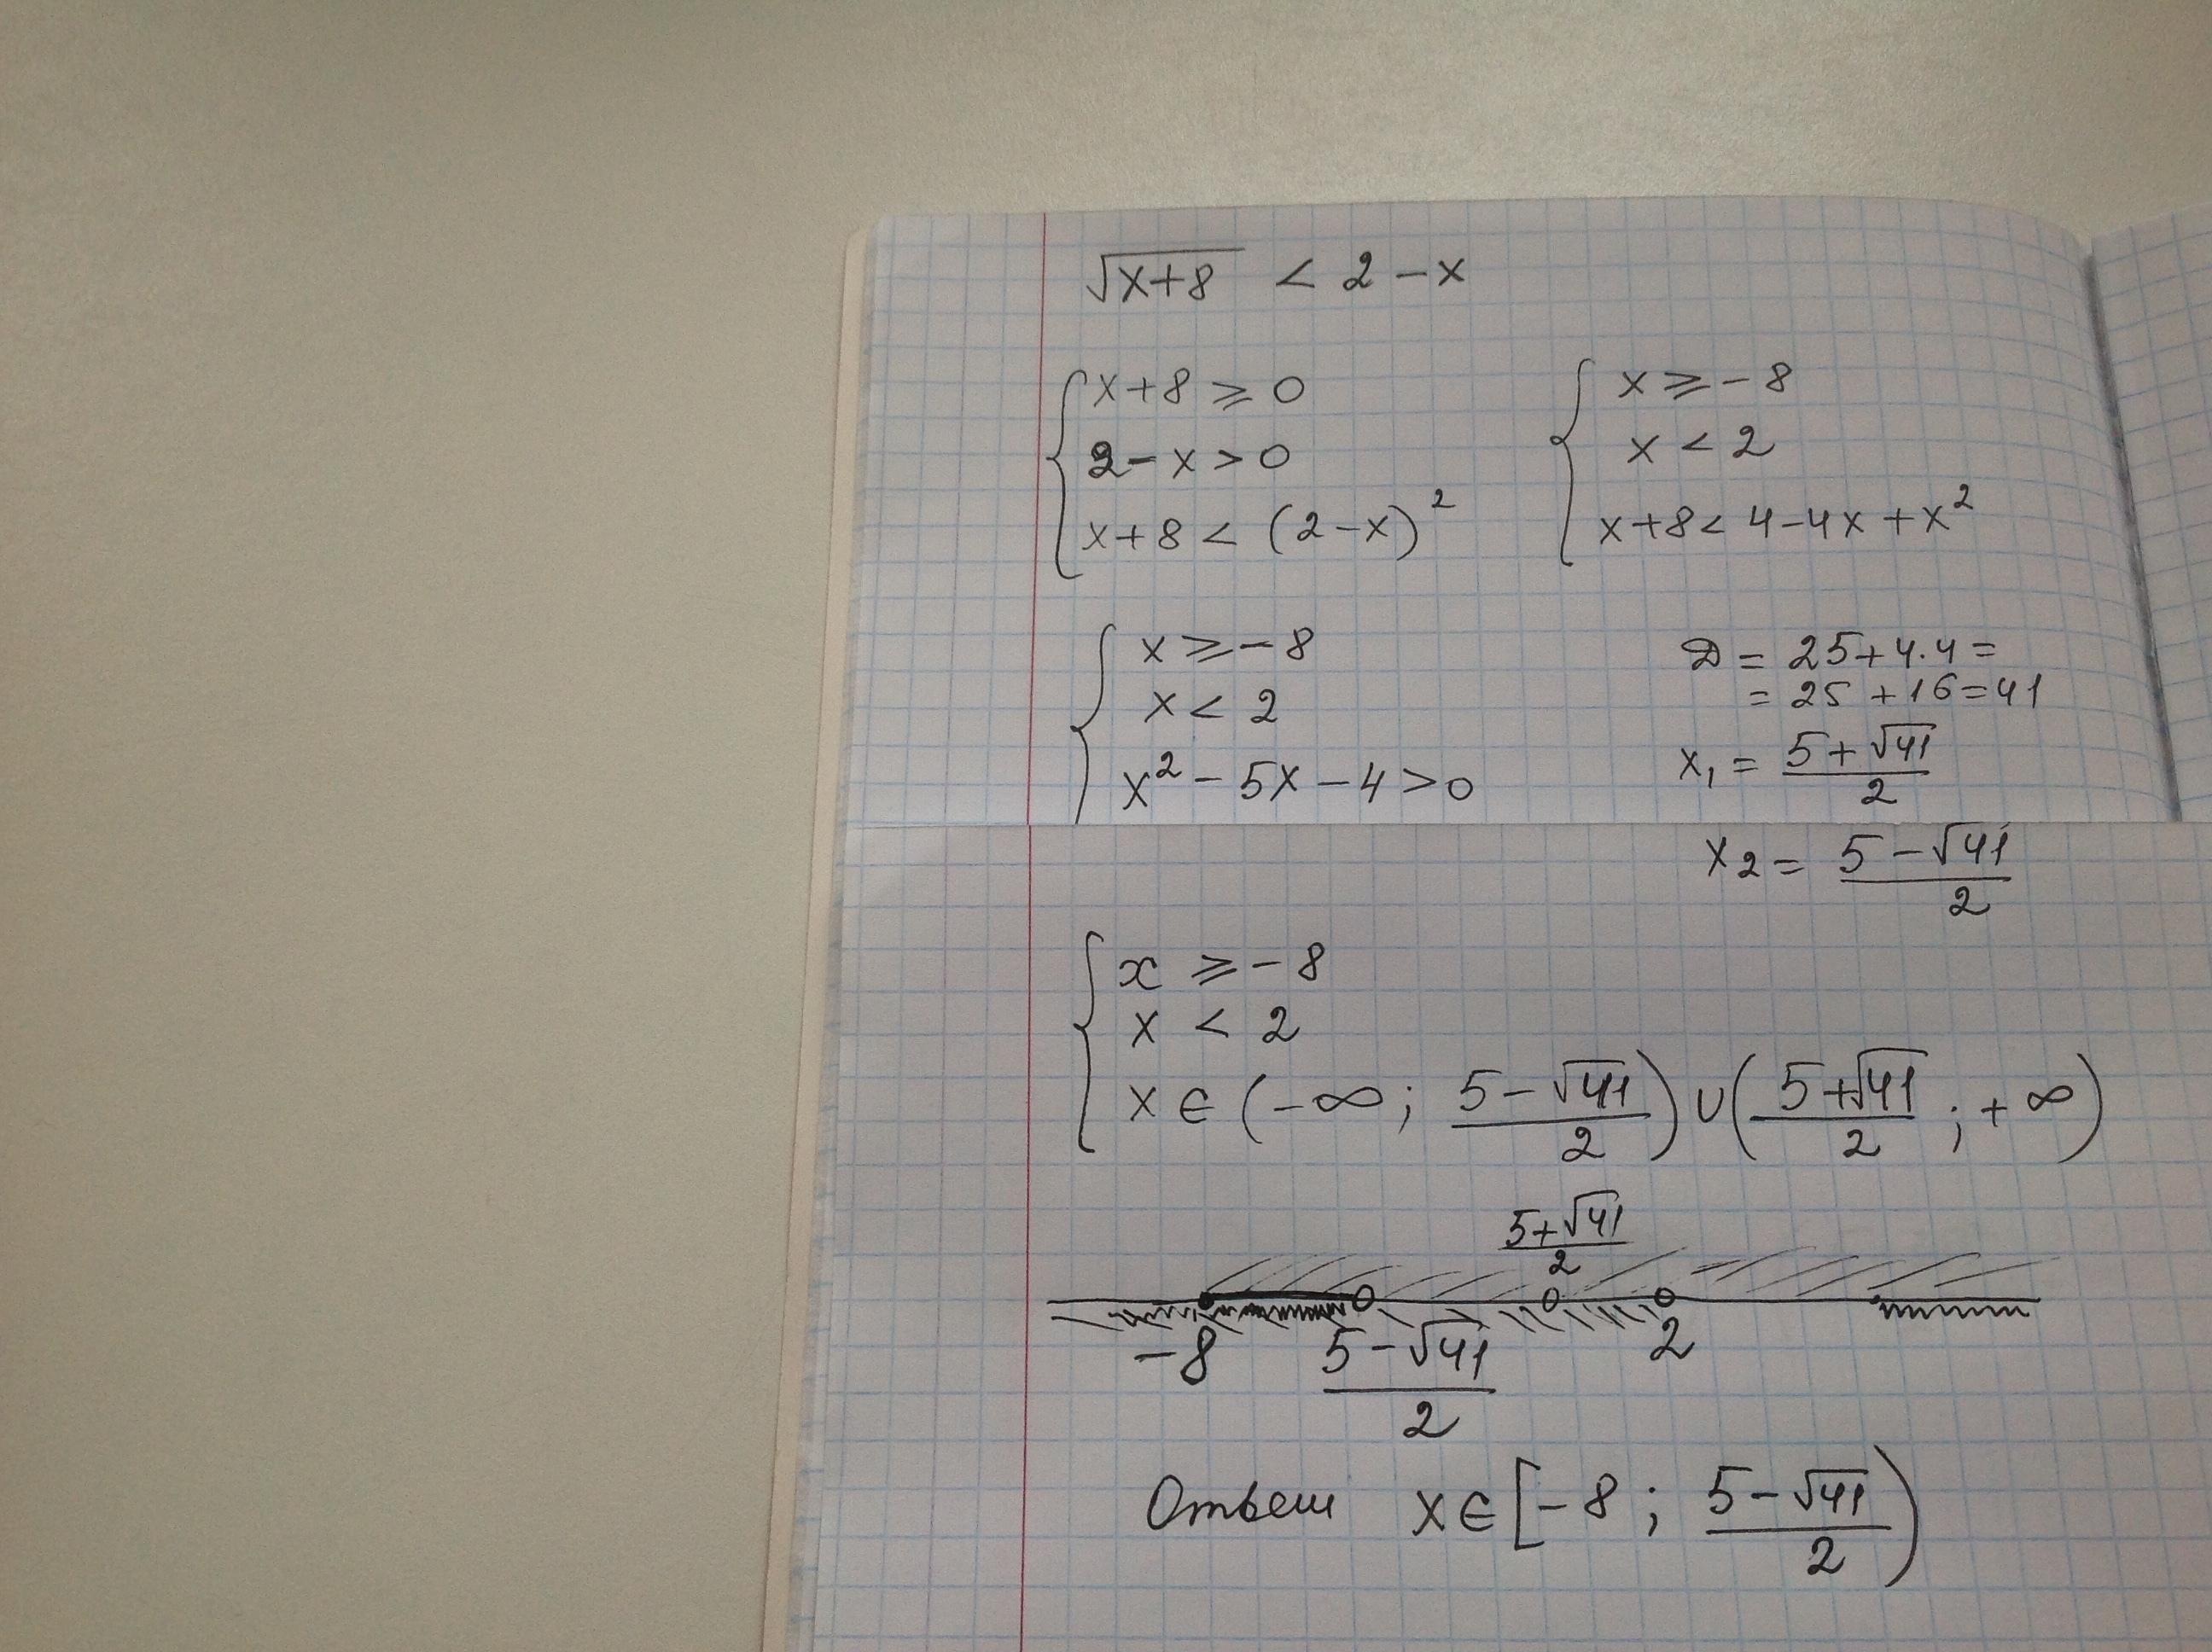 √(x+8) < 2 - x
{ x+8 ≥ 0
2 - x > 0
x+8 < (2-x)²
{ x ≥ -8
x < 2
x+8 < 4-4x+x²
{ x ≥ -8
x < 2
x² - 5x - 4 > 0
D = 25+4·4 =
= 25+16=41
x₁ = (5+√41)/2
x₂ = (5-√41)/2
{ x ≥ -8
x < 2
x ∈ (-∞; (5-√41)/2) ∪ ((5+√41)/2; +∞)
(5+√41)/2
-8 (5-√41)/2 2
Ответ x ∈ [-8; (5-√41)/2)